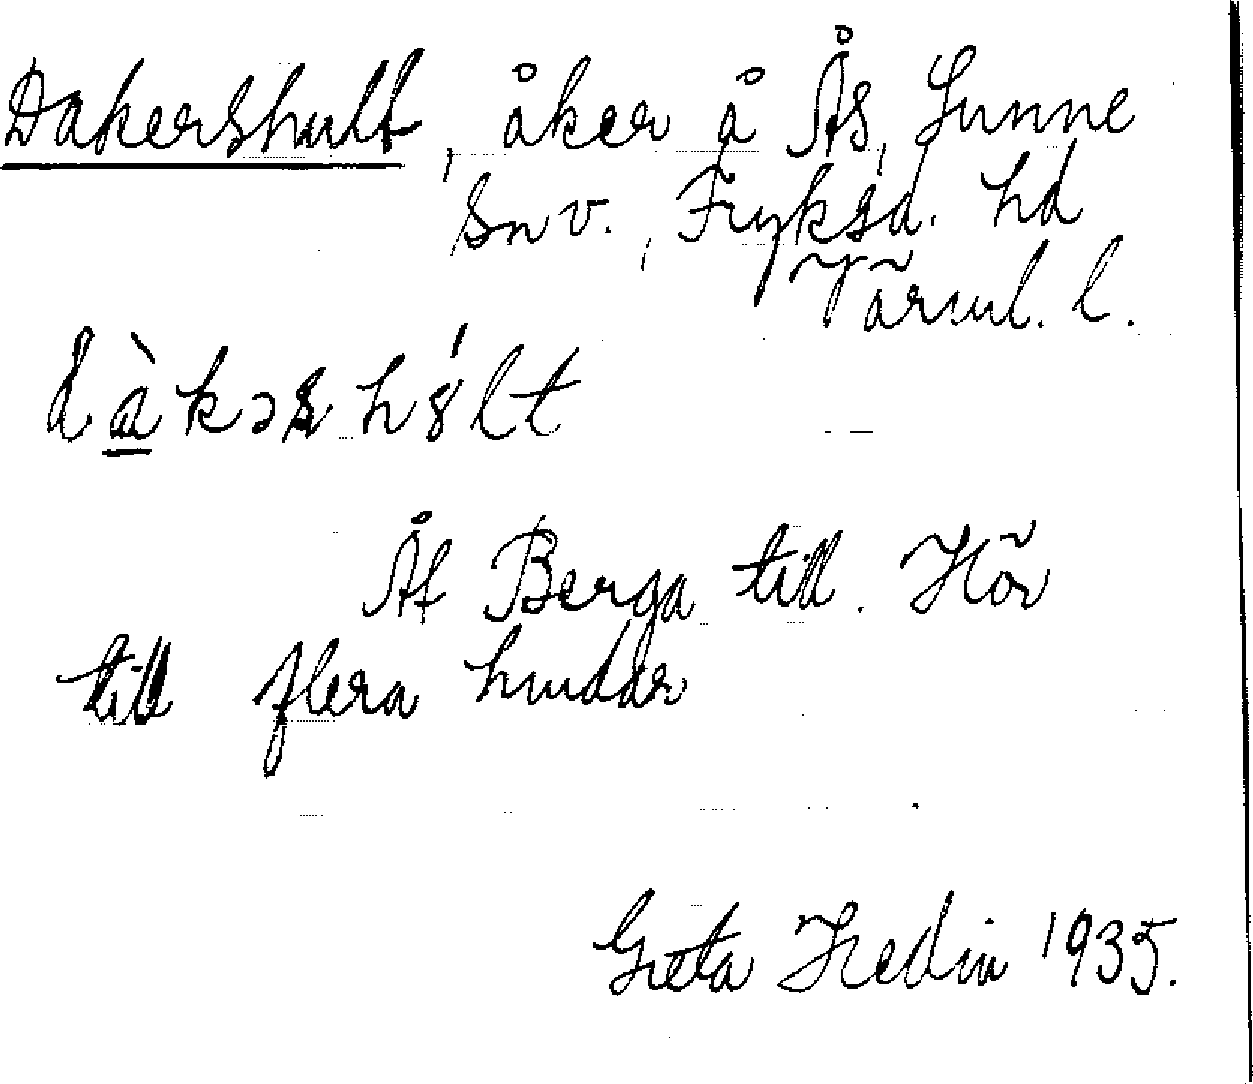 Dakershult, åker å Ås, Sunne
sn v., Fryksd. hd
Värml. l.
dàkəshólt
Åt Berga till. Hör
till flera huddar
Greta Hedin 1935.